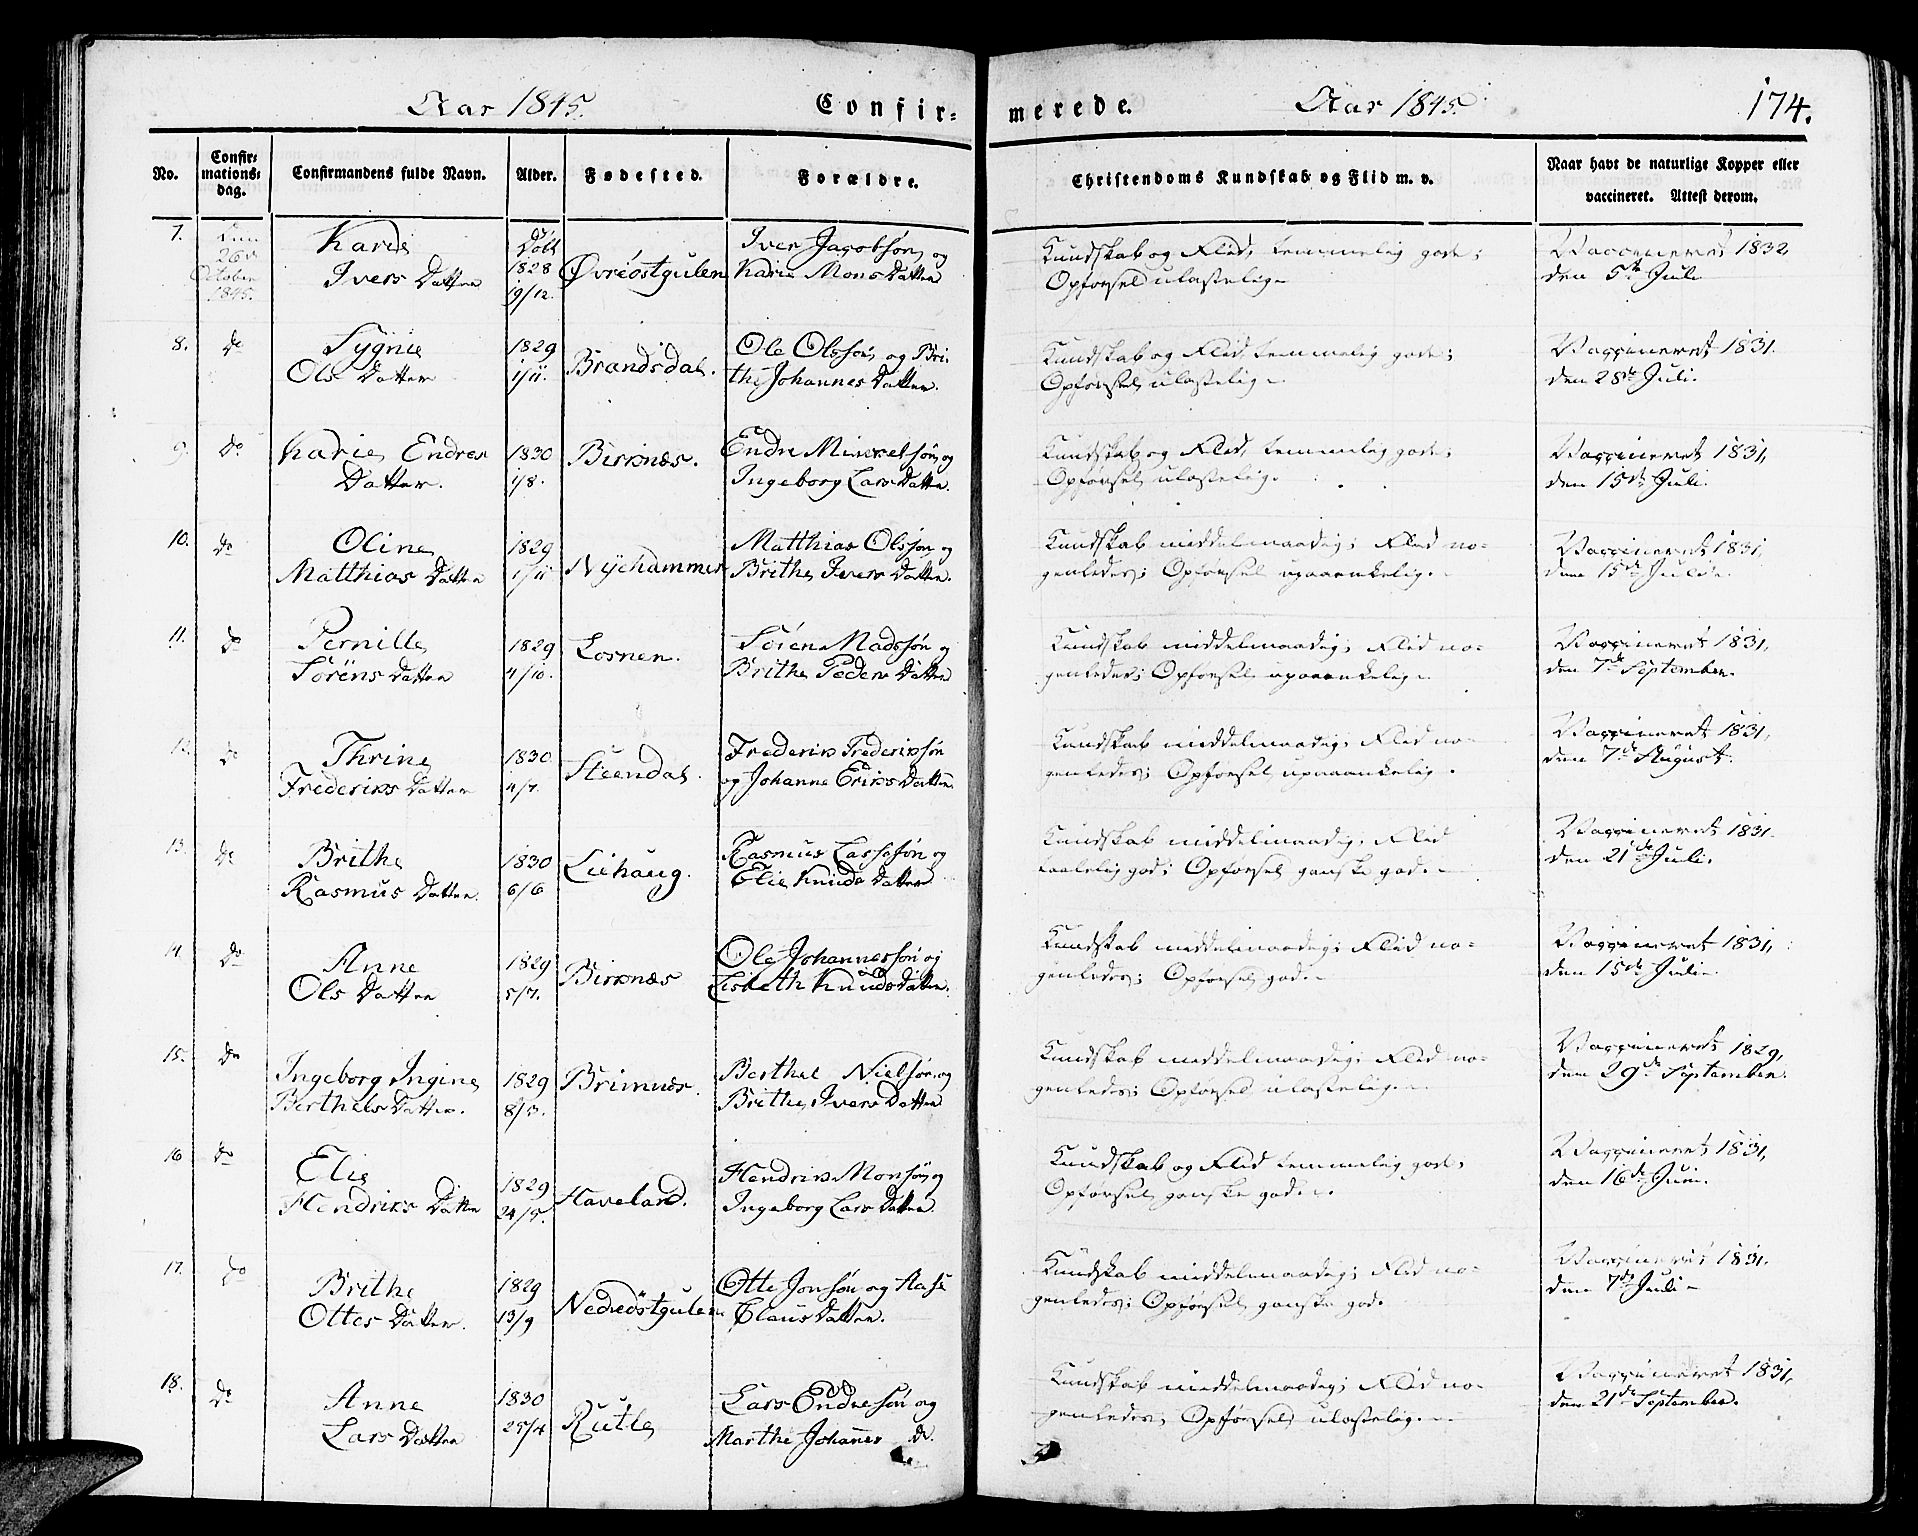 Aar 1845. Confir=
merede. Aar 1845. 174.
No.
Confir=
mations=
dag.
Confirmandens fulde Navn.
Alder.
Fødested.
Forældre.
Christendoms Kundskab og Flid m. v.
Naar havt de naturlige Kopper eller
vaccineret. Attest derom.
7.
Den
26de
October
1845.
Karie
Ivers Datter
Døbt
1828
19/12.
Øvreöstgulen
Iver Jacobsøn og
Karie Mons Datter
Kundskab og Flid temmelig gode;
Opførsel ulastelig.
Vaccineret 1832
den 5te Juli
8.
do
Sygnie
Ols Datter
1829
1/11.
Brandsdal.
Ole Olssøn og Bri-
the Johannes Datter.
Kundskab og Flid temmelig gode;
Opførsel ulastelig.
Vaccineret 1831.
den 28de Juli.
9.
do
Karie Endres
Datter.
1830
1/8.
Birknæs.
Endre Mikkelsøn og
Ingeborg Lars Datter.
Kundskab og Flid temmelig gode;
Opførsel ulastelig.
Vaccineret 1831,
den 15de Juli.
10.
do
Oline
Matthias Datter
1829
1/11
Nyehammer
Matthias Olssøn og
Brithe Ivers Datter.
Kundskab middelmaadig; Flid no=
genledes; Opførsel upaaankelig.
Vaccineret 1831,
den 15de Julie.
11.
do
Pernille
Sörens Datter
1829
4/10.
Losnen.
Sören Madssøn og
Brithe Peders Datter
Kundskab middelmaadig; Flid no=
genledes; Opførsel upaaankelig.
Vaccineret 1831,
den 7de September.
12.
do
Thrine
Frederiks Datter
1830
4/7.
Steendal.
Frederik Frederiksøn
og Johanne Eriks Datter.
Kundskab middelmaadig; Flid no=
genledes; Opførsel upaaankelig.
Vaccineret 1831,
den 7de August.
13.
do
Brithe
Rasmus Datter.
1830
6/6
Liehaug.
Rasmus Lassesøn og
Elie Knuds Datter
Kundskab middelmaadig; Flid
taalelig god; Opførsel ganske god.
Vaccineret 1831.
den 21de Juli.
14.
do
Anne
Ols Datter
1829
5/7.
Birknæs
Ole Johannessøn og
Lisbeth Knuds Datter.
Kundskab middelmaadig; Flid no=
genledes; Opførsel god.
Vaccineret 1831,
den 15de Julie
15.
do
Ingeborg Ingine
Berthels Datter.
1829
8/3.
Brimnæs.
Berthel Nielsøn og
Brithe Ivers Datter
Kundskab middelmaadig; Flid no=
genledes; Opførsel ulastelig.
Vaccineret 1829,
den 29de September.
16
do
Elie
Hendriks Datter
1829
24/5.
Haveland.
Hendrik Monsøn og
Ingeborg Lars Datter.
Kundskab og Flid temmelig gode;
Opførsel ganske god.
Vaccineret 1831,
den 16de Juni.
17.
do
Brithe
Ottes Datter.
1829
13/9
Nedreöstgulen
Otte Jonsøn og Aase
Claus Datter.
Kundskab middelmaadig; Flid no=
genledes; Opførsel ganske god.
Vaccineret 1831.
den 7de Juli
18.
do
Anne
Lars Datter
1830
25/4
Rutle
Lars Endresøn og
Marthe Johannes dr.
Kundskab middelmaadig; Flid no=
genledes; Opførsel ulastelig.
Vaccineret 1831,
den 21de September.